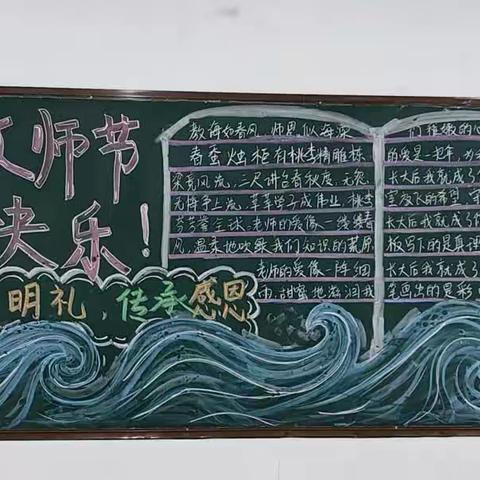 师节
乐！
明礼，传承感恩
教诲如春风，师恩似海深
春蚕烛炬 有桃李精雕栋
梁 风流，三尺讲台春秋度，无怨
无悔争上友，莘莘学子成伟业，桃李
芬芳誉全球。老师的爱像一缕缕春
风，温柔地吹绿我们知识的荒原
老师的爱像一阵细
雨，甜蜜地滋润我
们稚嫩的心
的爱是一把伞，
长大后我就成了
下的希望，
长大后我就成了
板写下的是真理
长大后我就成了
笔画出的是彩